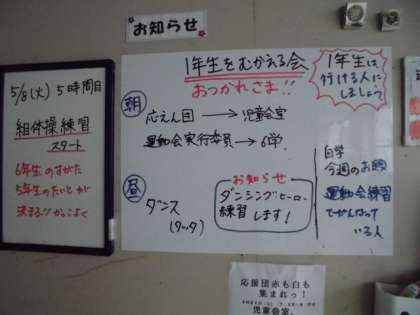 お知らせ
5/8(火) 5時間目
組体操練習
スタート
6年生のすがた
5年生のたいどが
決まる!! かっこよく
1年生をむかえる会
おつかれさま!!
朝
応えん団 → 児童会室
運動会実行委員 → 6学.
昼
ダンス
(タッタ)
お知らせ
ダンシングヒーロー
練習します!
1年生は
行ける人に
しましょう
自学
今週のお題
運動会練習
でがんばって
いる人
応援団赤も白も
集まれっ!
児童会室。